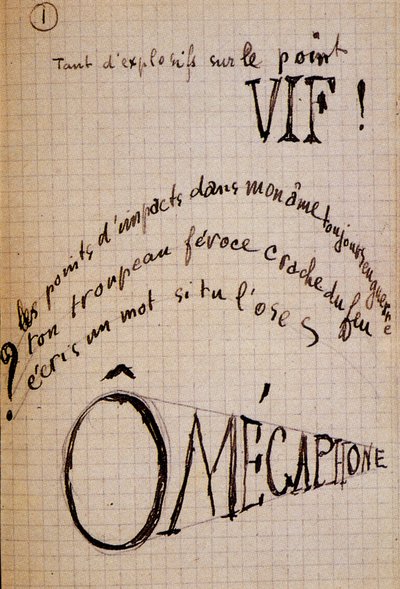 1
Tant d'explosifs sur le point
VIF !
les points d'impacts dans mon âme toujours en guerre
ton troupeau féroce crache du feu
écris un mot si tu l'oses
?
Ô MÉGAPHONE